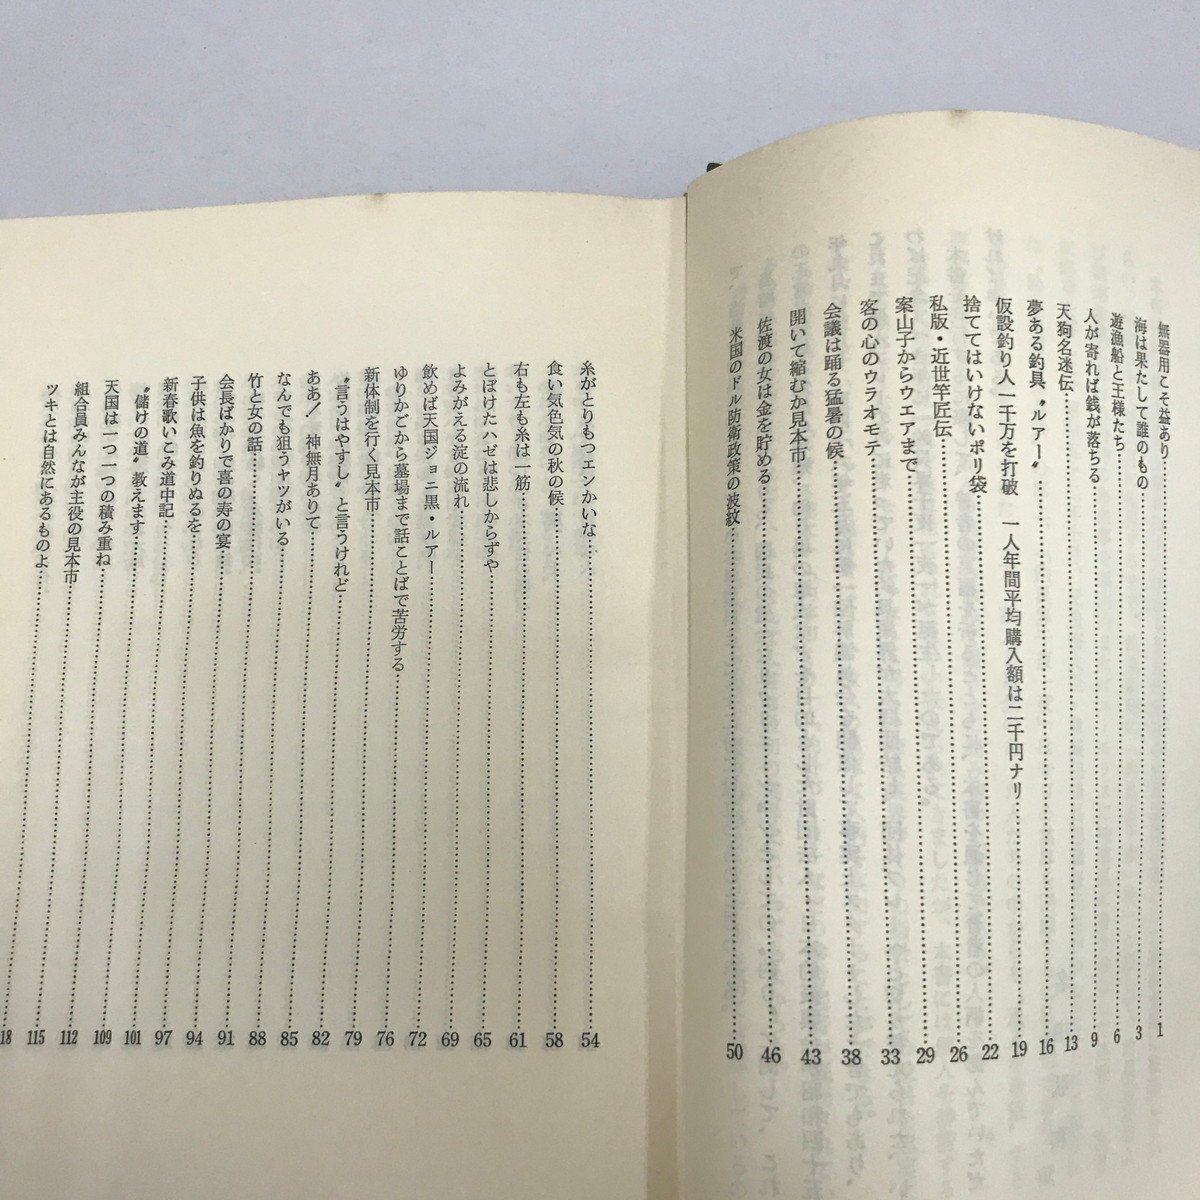 無器用こそ益あり……1
海は果たして誰のもの……3
遊漁船と王様たち……6
人が寄れば銭が落ちる……9
天狗名迷伝……13
夢ある釣具〝ルアー〟……16
仮設釣り人一千万を打破　一人年間平均購入額は二千円ナリ……19
捨ててはいけないポリ袋……22
私版・近世竿匠伝……26
案山子からウエアまで……29
客の心のウラオモテ……33
会議は踊る猛暑の候……38
開いて縮むか見本市……43
佐渡の女は金を貯める……46
米国のドル防衛政策の波紋……50
糸がとりもつエンかいな……54
食い気色気の秋の候……58
右も左も糸は一筋……61
とぼけたハゼは悲しからずや……65
よみがえる淀の流れ……69
飲めば天国ジョニ黒・ルアー……72
ゆりかどから墓場まで話ことばで苦労する……76
新体制を行く見本市……79
〝言うはやすし〟と言うけれど……82
ああ！　神無月ありて……85
なんでも狙うヤツがいる……88
竹と女の話……91
会長ばかりで喜の寿の宴……94
子供は魚を釣りぬるを……97
新春歌いこみ道中記……101
〝儲けの道〟教えます……109
天国は一つ一つの積み重ね……112
組合員みんなが主役の見本市……115
ツキとは自然にあるものよ……18